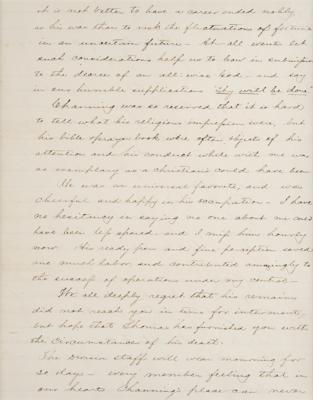 it is not better to have a career ended nobly
in this war than to risk the fluctuations of fortune
in an uncertain future — At all events let
such considerations help us to bow in submission
to the decree of an all-wise God — and say
in our humble supplications "Thy will be done"
Channing was so reserved that it is hard
to tell what his religious impressions were, but
his bible & prayer book were often objects of his
attention and his conduct while with me was
as exemplary as a christian's could have been
He was an universal favorite, and was
cheerful and happy in his occupation — I have
no hesitency in saying no one about me could
have been less spared — and I miss him hourly
now. His ready pen and fine perception saved
me much labor and contributed amazingly to
the success of operations under my control —
We all deeply regret that his remains
did not reach you in time for interment,
but hope that Thomas has furnished you with
the circumstances of his death.
The Division staff will wear mourning for
30 days — every member feeling that in
our hearts Channing's place can never